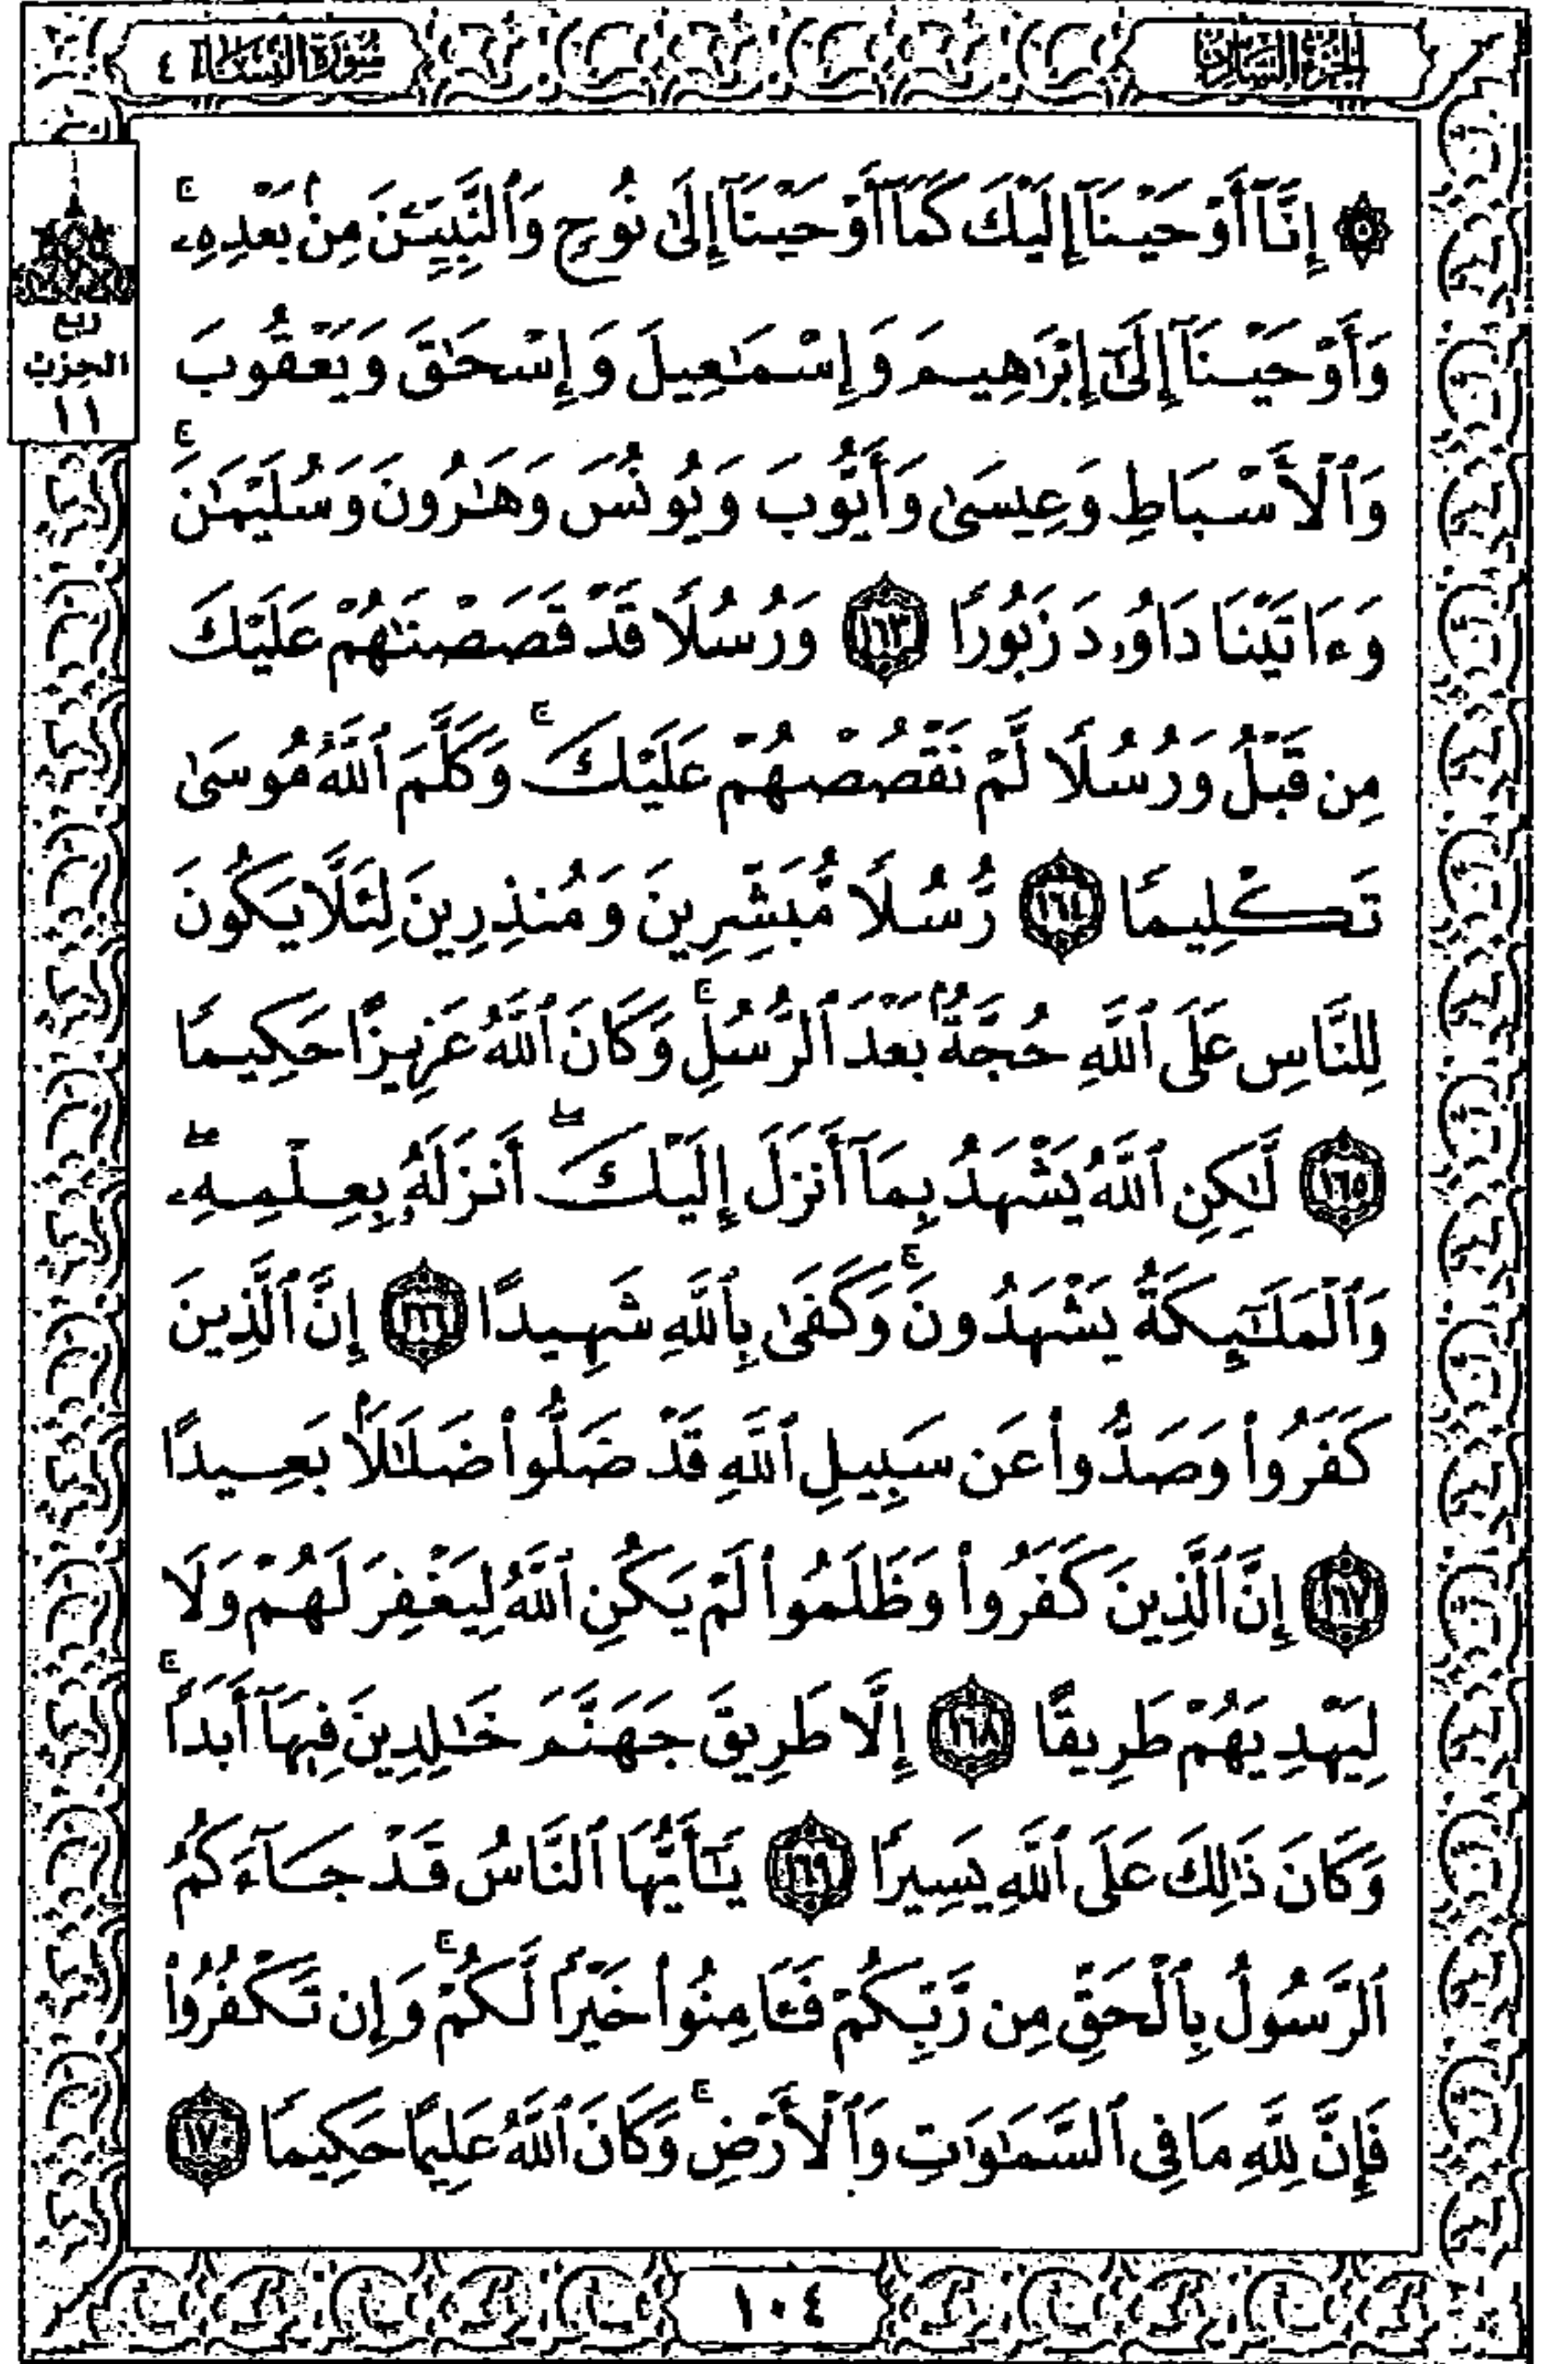 الجزء السادس
سورة النساء ٤
۞ إِنَّآ أَوْحَيْنَآ إِلَيْكَ كَمَآ أَوْحَيْنَآ إِلَىٰ نُوحٍ وَٱلنَّبِيِّـۧنَ مِنۢ بَعْدِهِۦ ۚ
وَأَوْحَيْنَآ إِلَىٰٓ إِبْرَٰهِيمَ وَإِسْمَـٰعِيلَ وَإِسْحَـٰقَ وَيَعْقُوبَ
وَٱلْأَسْبَاطِ وَعِيسَىٰ وَأَيُّوبَ وَيُونُسَ وَهَـٰرُونَ وَسُلَيْمَـٰنَ ۚ
وَءَاتَيْنَا دَاوُۥدَ زَبُورًا ١٦٣ وَرُسُلًا قَدْ قَصَصْنَـٰهُمْ عَلَيْكَ
مِن قَبْلُ وَرُسُلًا لَّمْ نَقْصُصْهُمْ عَلَيْكَ ۚ وَكَلَّمَ ٱللَّهُ مُوسَىٰ
تَكْلِيمًا ١٦٤ رُّسُلًا مُّبَشِّرِينَ وَمُنذِرِينَ لِئَلَّا يَكُونَ
لِلنَّاسِ عَلَى ٱللَّهِ حُجَّةٌۢ بَعْدَ ٱلرُّسُلِ ۚ وَكَانَ ٱللَّهُ عَزِيزًا حَكِيمًا
١٦٥ لَّـٰكِنِ ٱللَّهُ يَشْهَدُ بِمَآ أَنزَلَ إِلَيْكَ ۖ أَنزَلَهُۥ بِعِلْمِهِۦ ۖ
وَٱلْمَلَـٰٓئِكَةُ يَشْهَدُونَ ۚ وَكَفَىٰ بِٱللَّهِ شَهِيدًا ١٦٦ إِنَّ ٱلَّذِينَ
كَفَرُوا۟ وَصَدُّوا۟ عَن سَبِيلِ ٱللَّهِ قَدْ ضَلُّوا۟ ضَلَـٰلًۢا بَعِيدًا
١٦٧ إِنَّ ٱلَّذِينَ كَفَرُوا۟ وَظَلَمُوا۟ لَمْ يَكُنِ ٱللَّهُ لِيَغْفِرَ لَهُمْ وَلَا
لِيَهْدِيَهُمْ طَرِيقًا ١٦٨ إِلَّا طَرِيقَ جَهَنَّمَ خَـٰلِدِينَ فِيهَآ أَبَدًا ۚ
وَكَانَ ذَٰلِكَ عَلَى ٱللَّهِ يَسِيرًا ١٦٩ يَـٰٓأَيُّهَا ٱلنَّاسُ قَدْ جَآءَكُمُ
ٱلرَّسُولُ بِٱلْحَقِّ مِن رَّبِّكُمْ فَـَٔامِنُوا۟ خَيْرًا لَّكُمْ ۚ وَإِن تَكْفُرُوا۟
فَإِنَّ لِلَّهِ مَا فِى ٱلسَّمَـٰوَٰتِ وَٱلْأَرْضِ ۚ وَكَانَ ٱللَّهُ عَلِيمًا حَكِيمًا ١٧٠
ربع
الحزب
١١
١٠٤